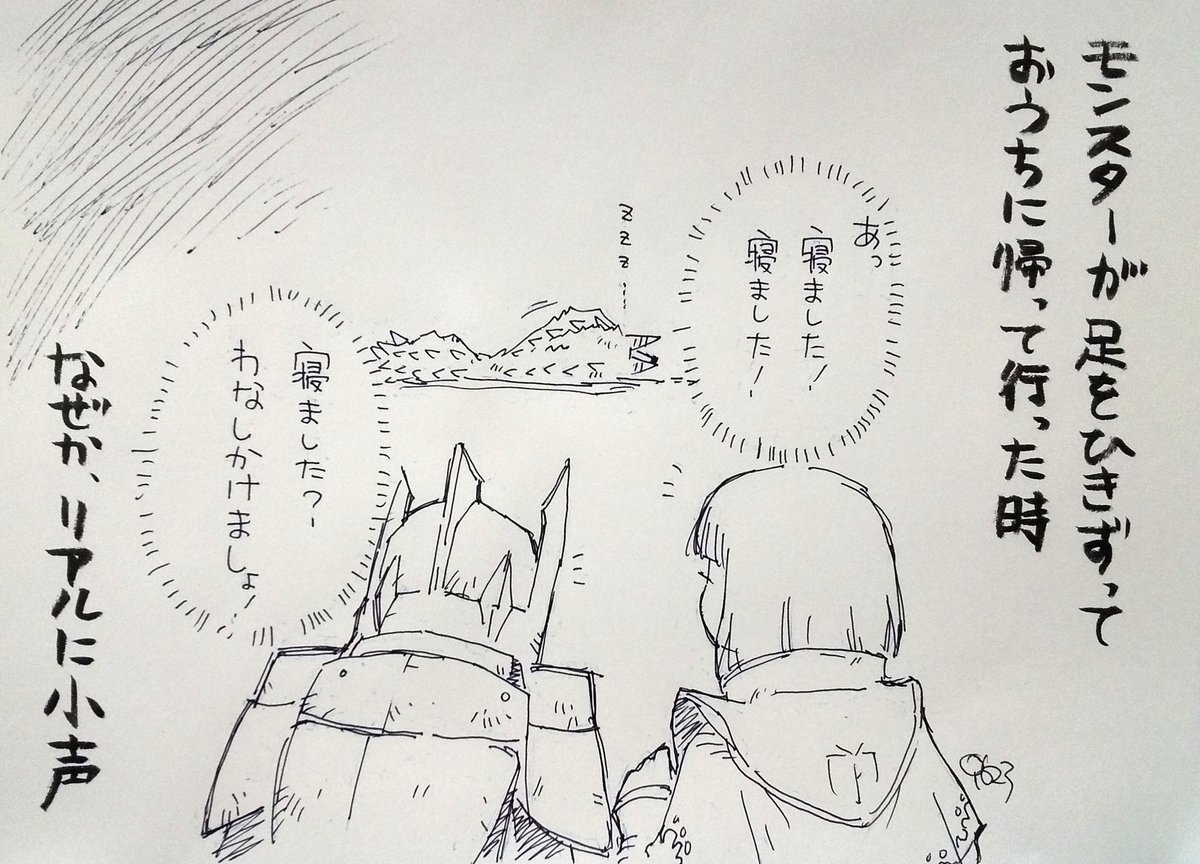 モンスターが足をひきずって
おうちに帰って行った時
あっ
寝ました!
寝ました!
zzz……
寝ました?
わなしかけましょ!
なぜか、リアルに小声